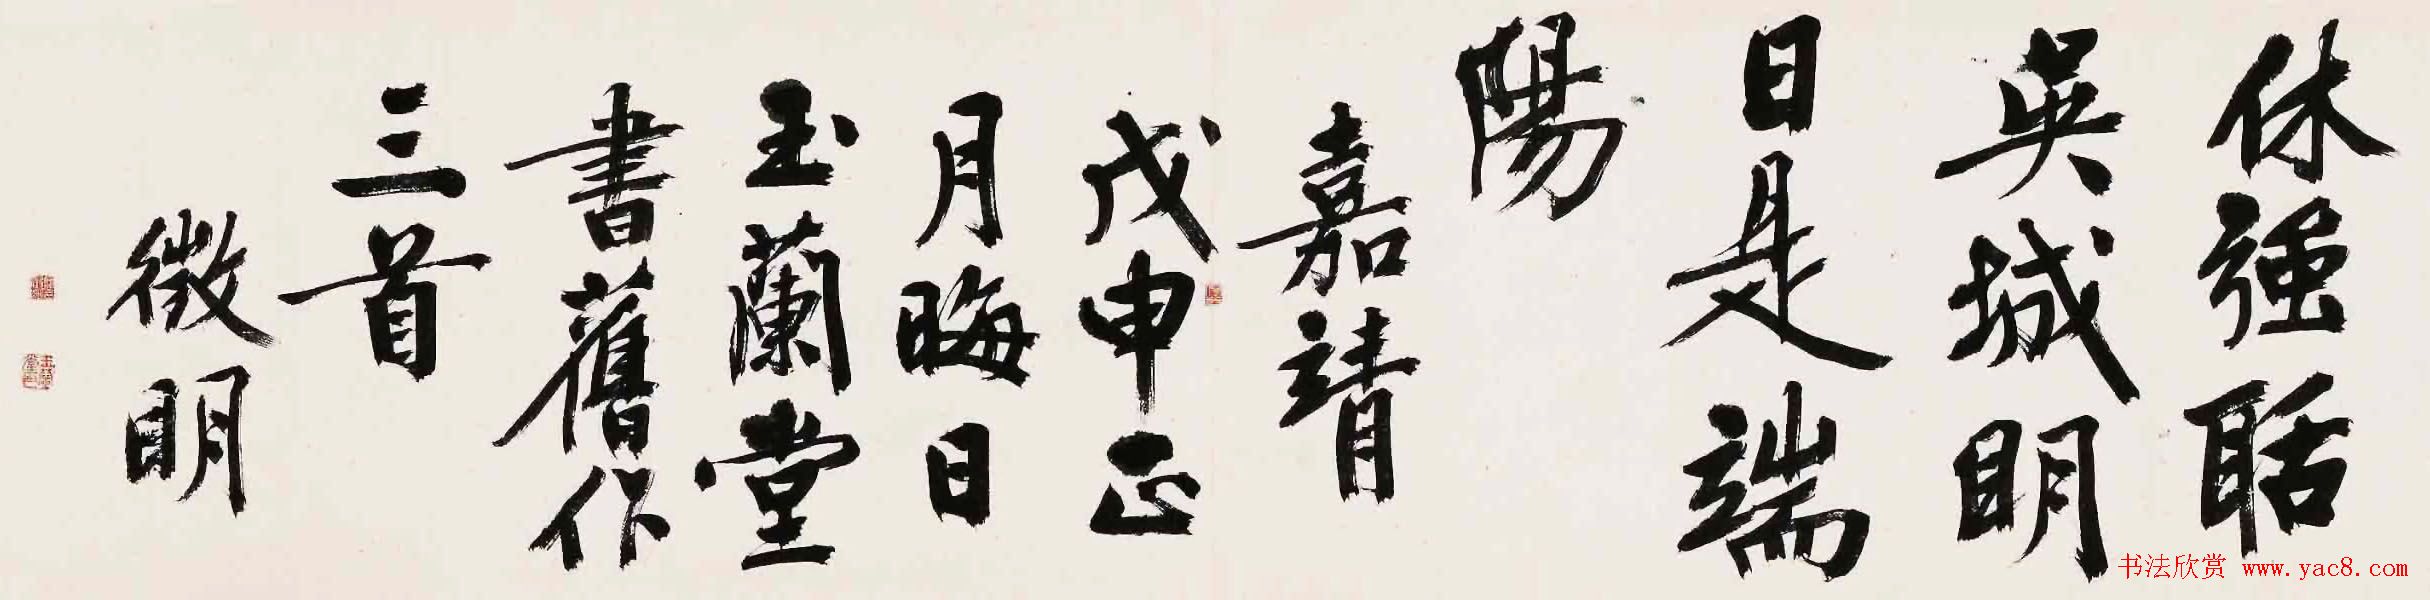 休强聒
吴城明
日是端
陽
嘉靖
戊申正
月晦日
玉蘭堂
書舊作
三首
徵明
书法欣赏 www.yac8.com